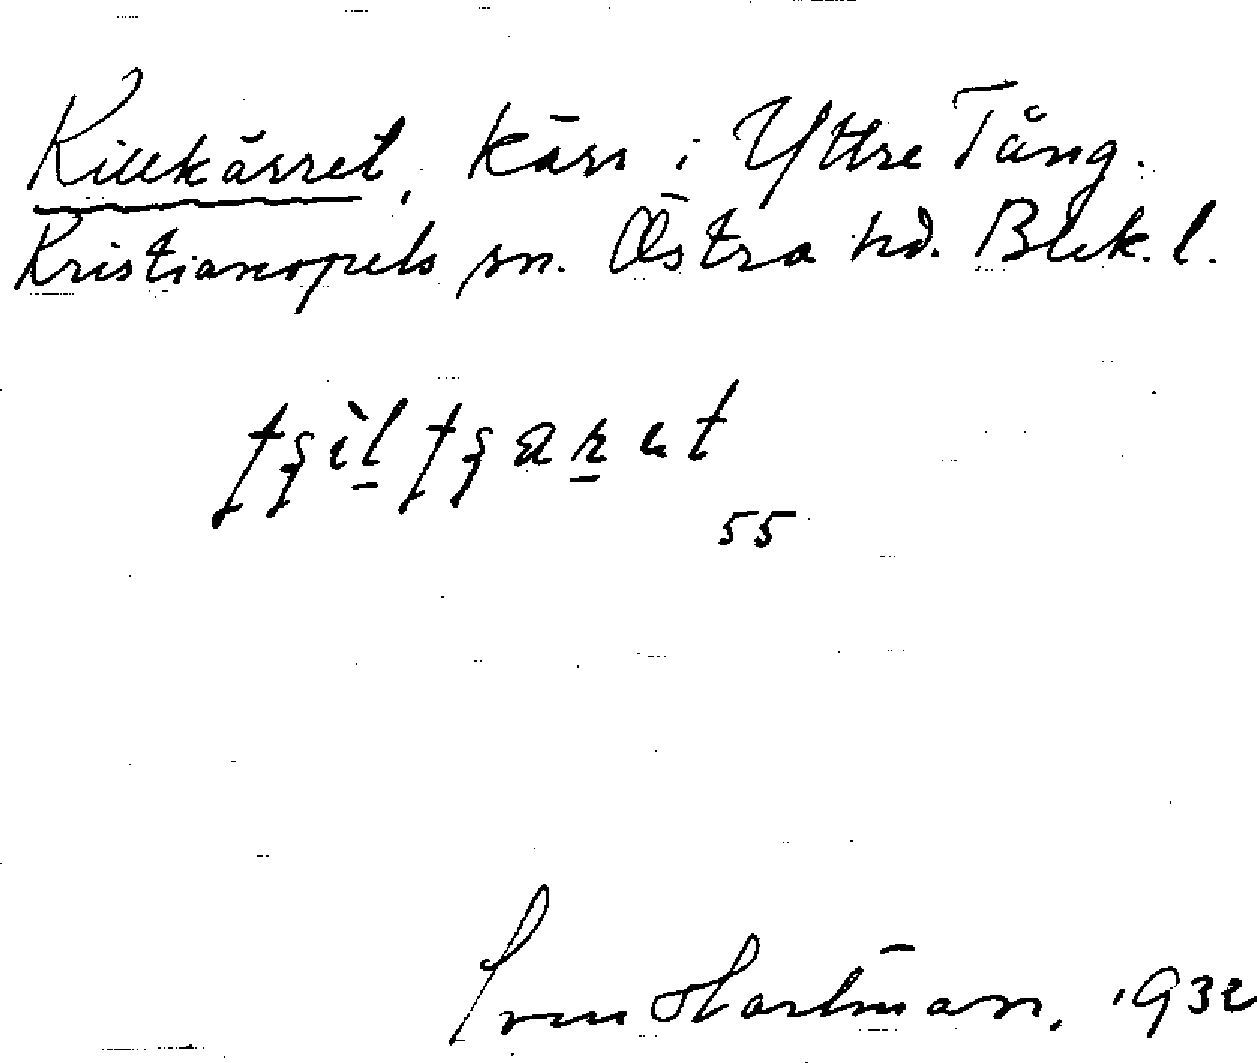 Killekärret, kärr i Yttre Tång.
Kristianopels sn. Östra hd. Blek. l.
55
Sven Hartman, 1932